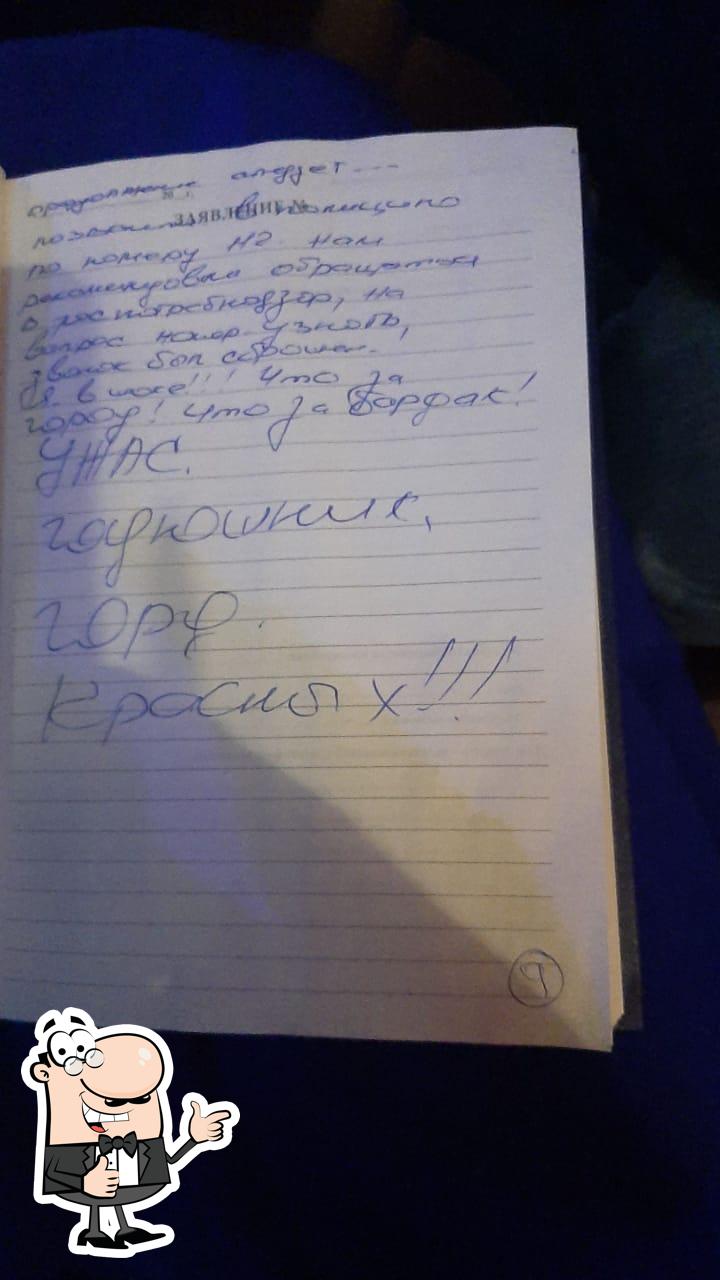 продолжение следует...
ЗАЯВЛЕНИЕ №
позвонить в полицию
по номеру 112. нам
рекомендовали обращаться
в роспотребнадзор, на
вопрос номер узнать,
звонок был сброшен.
Я в шоке!!! Что за
город! Что за Бардак!
УЖАС.
гаднюшник,
город
Красных!!!
9